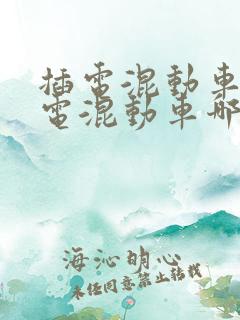 插電混動車
電混動車哪
海沁明心
未经同意禁止转载